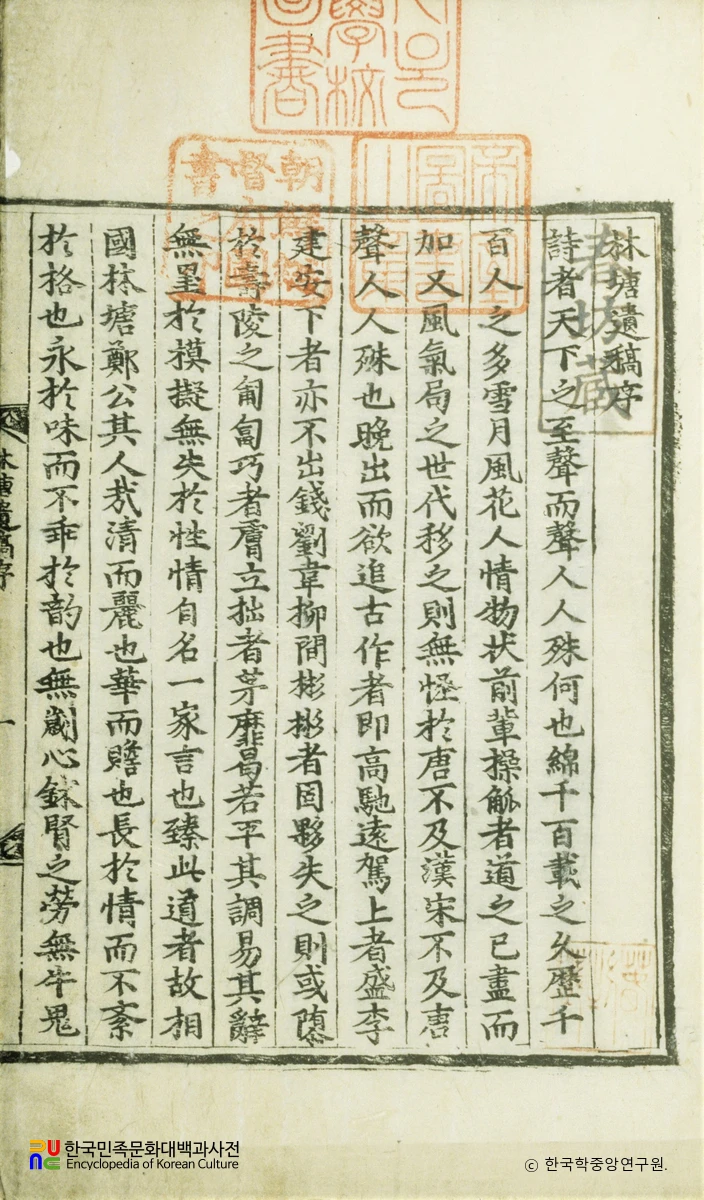 林塘遺稿序
詩者天下之至聲而聲人人殊何也綿千百載之久歷千
百人之多雪月風花人情物状前輩操觚者道之已盡而
加又風氣局之世代移之則無怪於唐不及漢宋不及唐
聲人人殊也晚出而欲追古作者即高馳遠駕上者盛李
建安下者亦不出錢劉韋柳間彬彬者固夥失之則或墮
於壽陵之匍匐巧者膺立拙者茅靡曷若平其調易其辭
無墨於模擬無失於性情自名一家言也臻此道者故相
國林塘鄭公其人㢤清而麗也華而贍也長於情而不紊
於格也永於味而不乖於韵也無劌心鉥腎之勞無牛鬼
林塘遺稿序
一
한국민족문화대백과사전
Encyclopedia of Korean Culture
© 한국학중앙연구원.